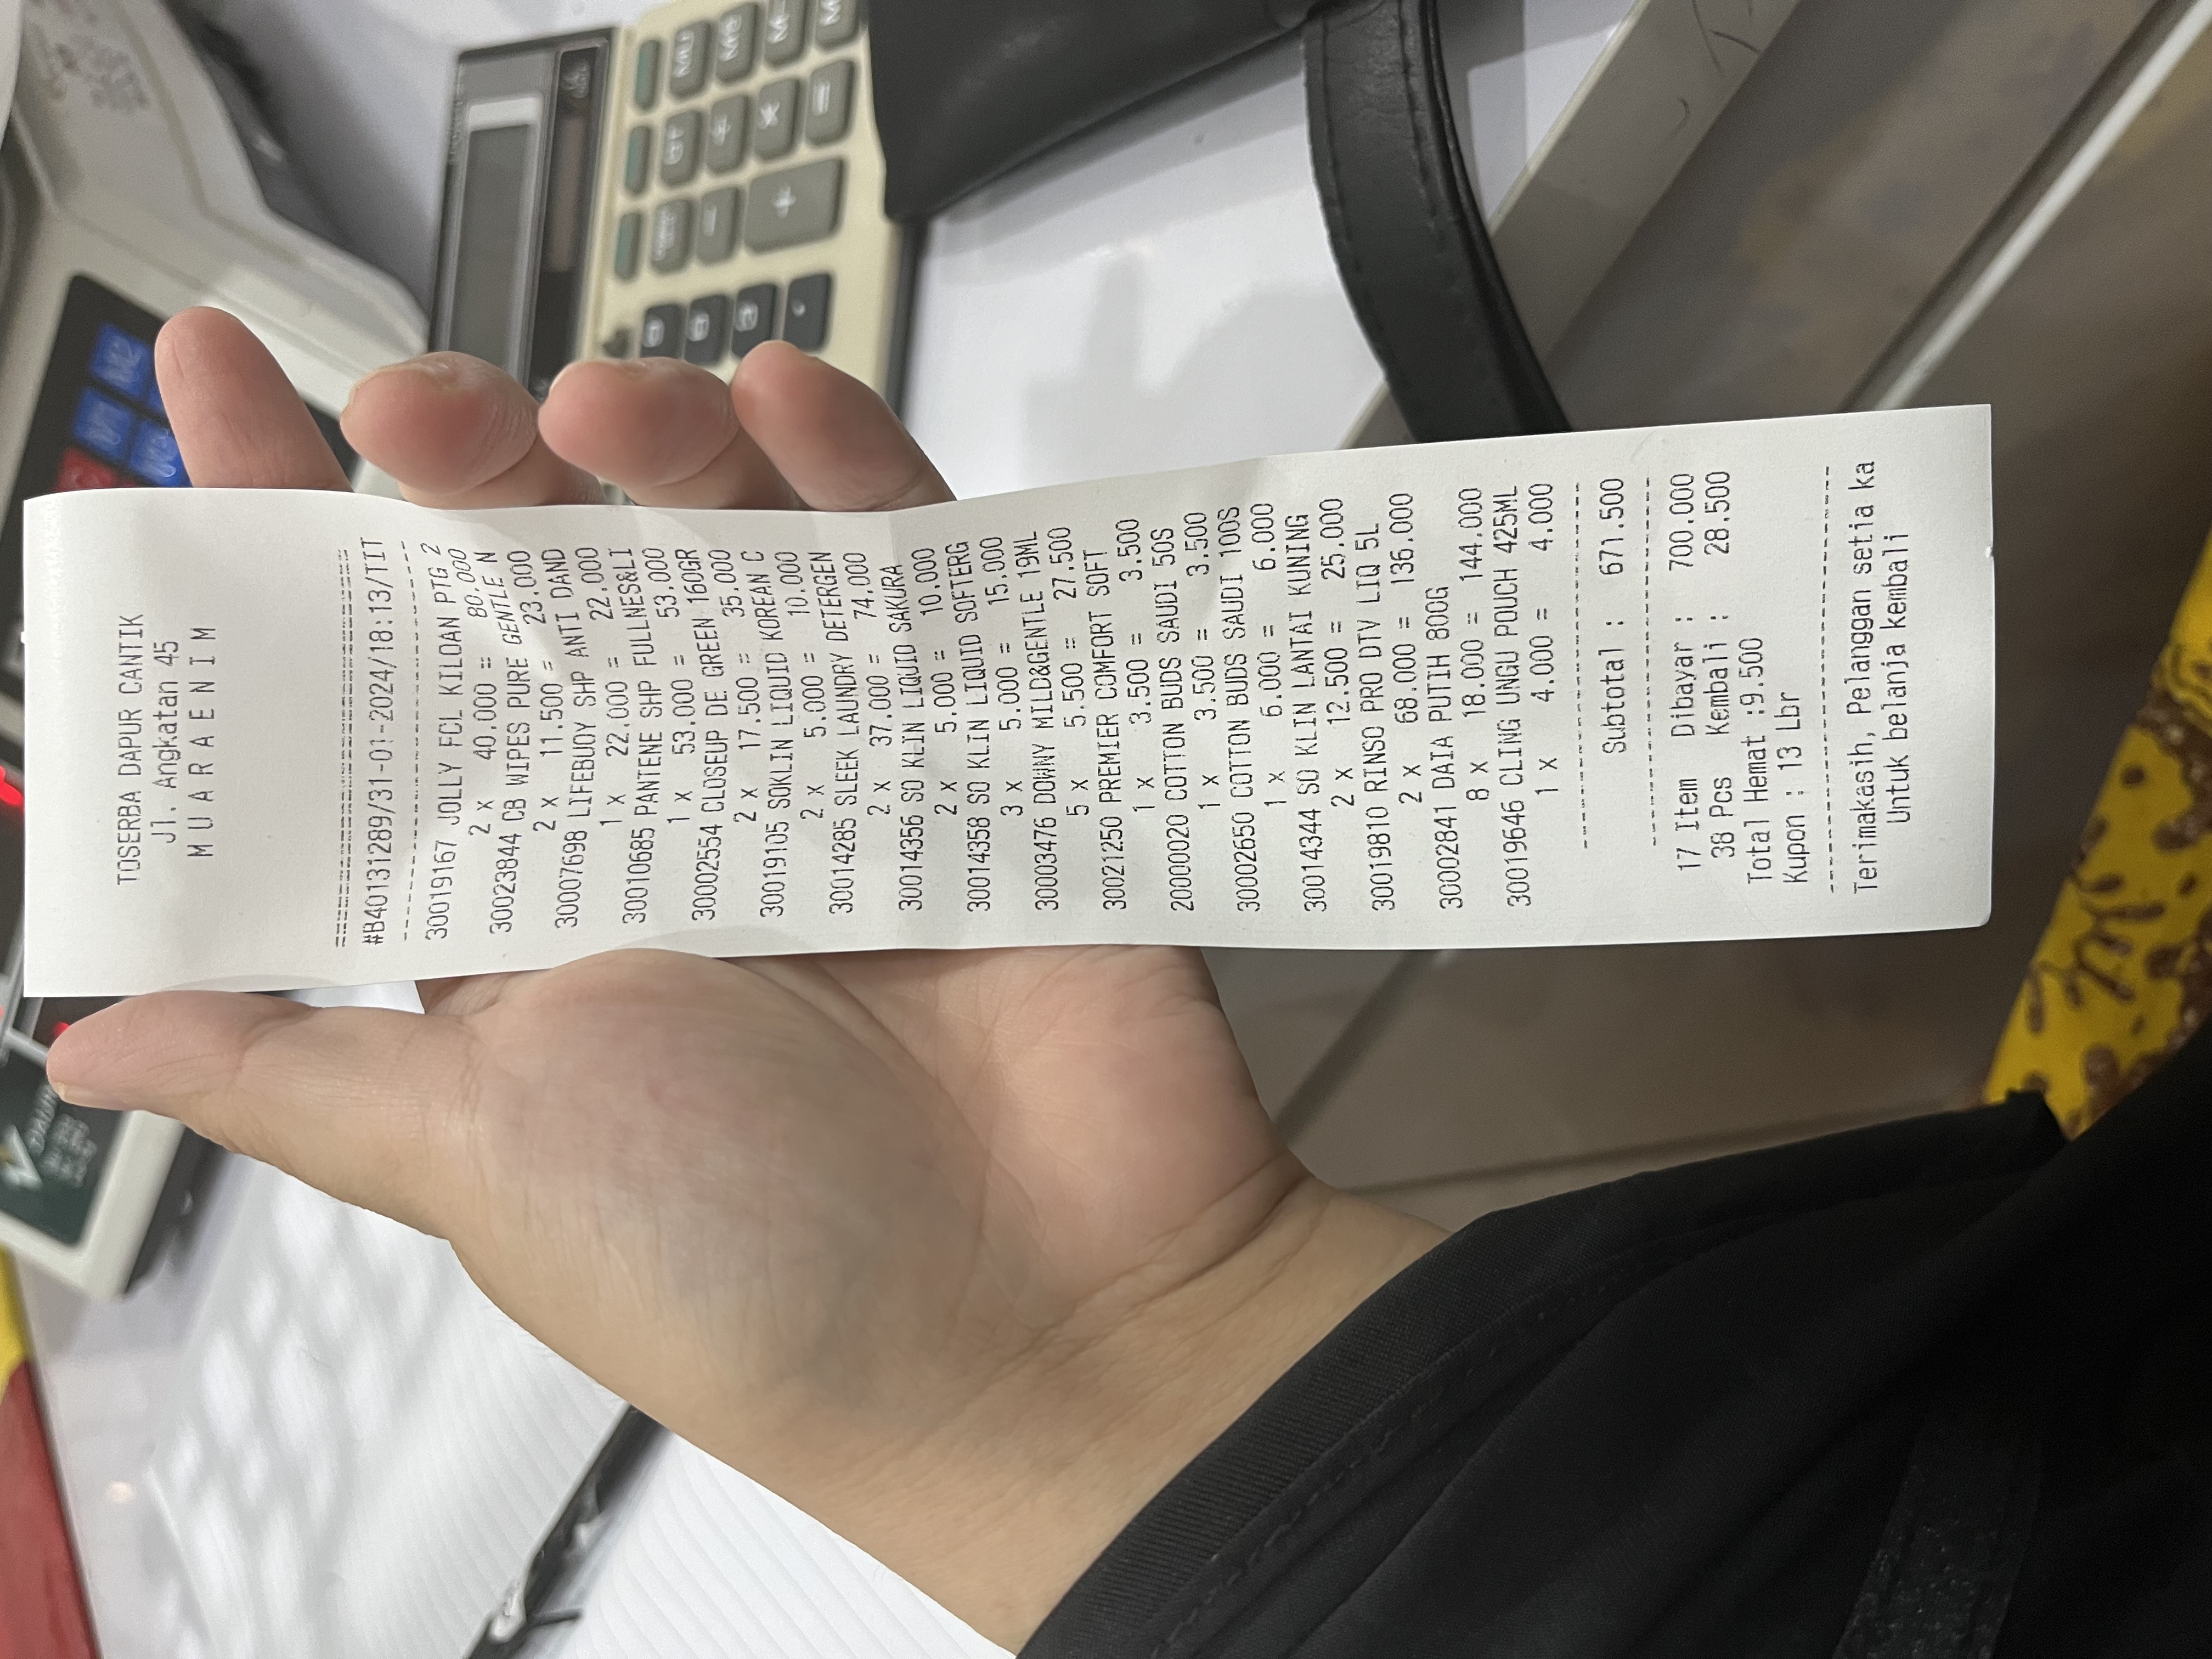 TOSERBA DAPUR CANTIK
Jl. Angkatan 45
M U A R A E N I M
==================================
#B40131289/31-01-2024/18:13/TIT
----------------------------------
30019167 JOLLY FCL KILOAN PTG 2
2 x 40.000 = 80.000
30023844 CB WIPES PURE GENTLE N
2 x 11.500 = 23.000
30007698 LIFEBUOY SHP ANTI DAND
1 x 22.000 = 22.000
30010685 PANTENE SHP FULLNES&LI
1 x 53.000 = 53.000
30002554 CLOSEUP DE GREEN 160GR
2 x 17.500 = 35.000
30019105 SOKLIN LIQUID KOREAN C
2 x 5.000 = 10.000
30014285 SLEEK LAUNDRY DETERGEN
2 x 37.000 = 74.000
30014356 SO KLIN LIQUID SAKURA
2 x 5.000 = 10.000
30014358 SO KLIN LIQUID SOFTERG
3 x 5.000 = 15.000
30003476 DOWNY MILD&GENTLE 19ML
5 x 5.500 = 27.500
30021250 PREMIER COMFORT SOFT
1 x 3.500 = 3.500
20000020 COTTON BUDS SAUDI 50S
1 x 3.500 = 3.500
30002650 COTTON BUDS SAUDI 100S
1 x 6.000 = 6.000
30014344 SO KLIN LANTAI KUNING
2 x 12.500 = 25.000
30019810 RINSO PRO DTV LIQ 5L
2 x 68.000 = 136.000
30002841 DAIA PUTIH 800G
8 x 18.000 = 144.000
30019646 CLING UNGU POUCH 425ML
1 x 4.000 = 4.000
----------------------------------
Subtotal : 671.500
----------------------------------
17 Item Dibayar : 700.000
38 Pcs Kembali : 28.500
Total Hemat :9.500
Kupon : 13 Lbr
----------------------------------
Terimakasih, Pelanggan setia ka
Untuk belanja kembali